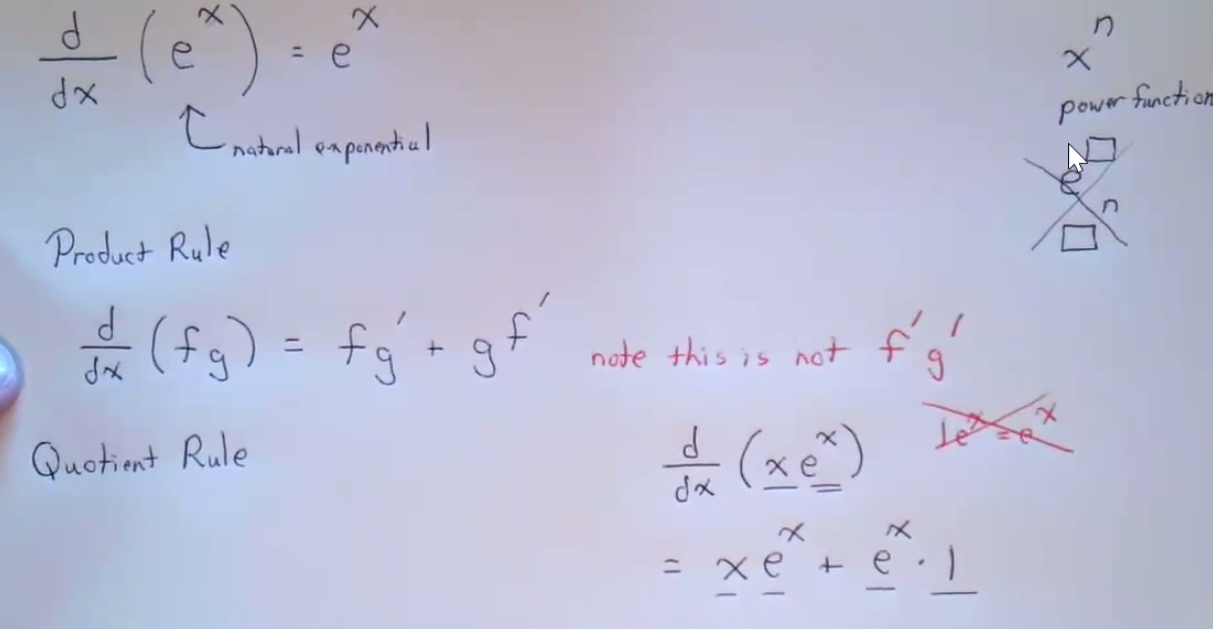 d/dx (e^x) = e^x
natural exponential
x^n
power function
e^□
□^n
Product Rule
d/dx (fg) = fg' + gf'
note this is not f'g'
1e^x = e^x
Quotient Rule
d/dx (xe^x)
= xe^x + e^x · 1